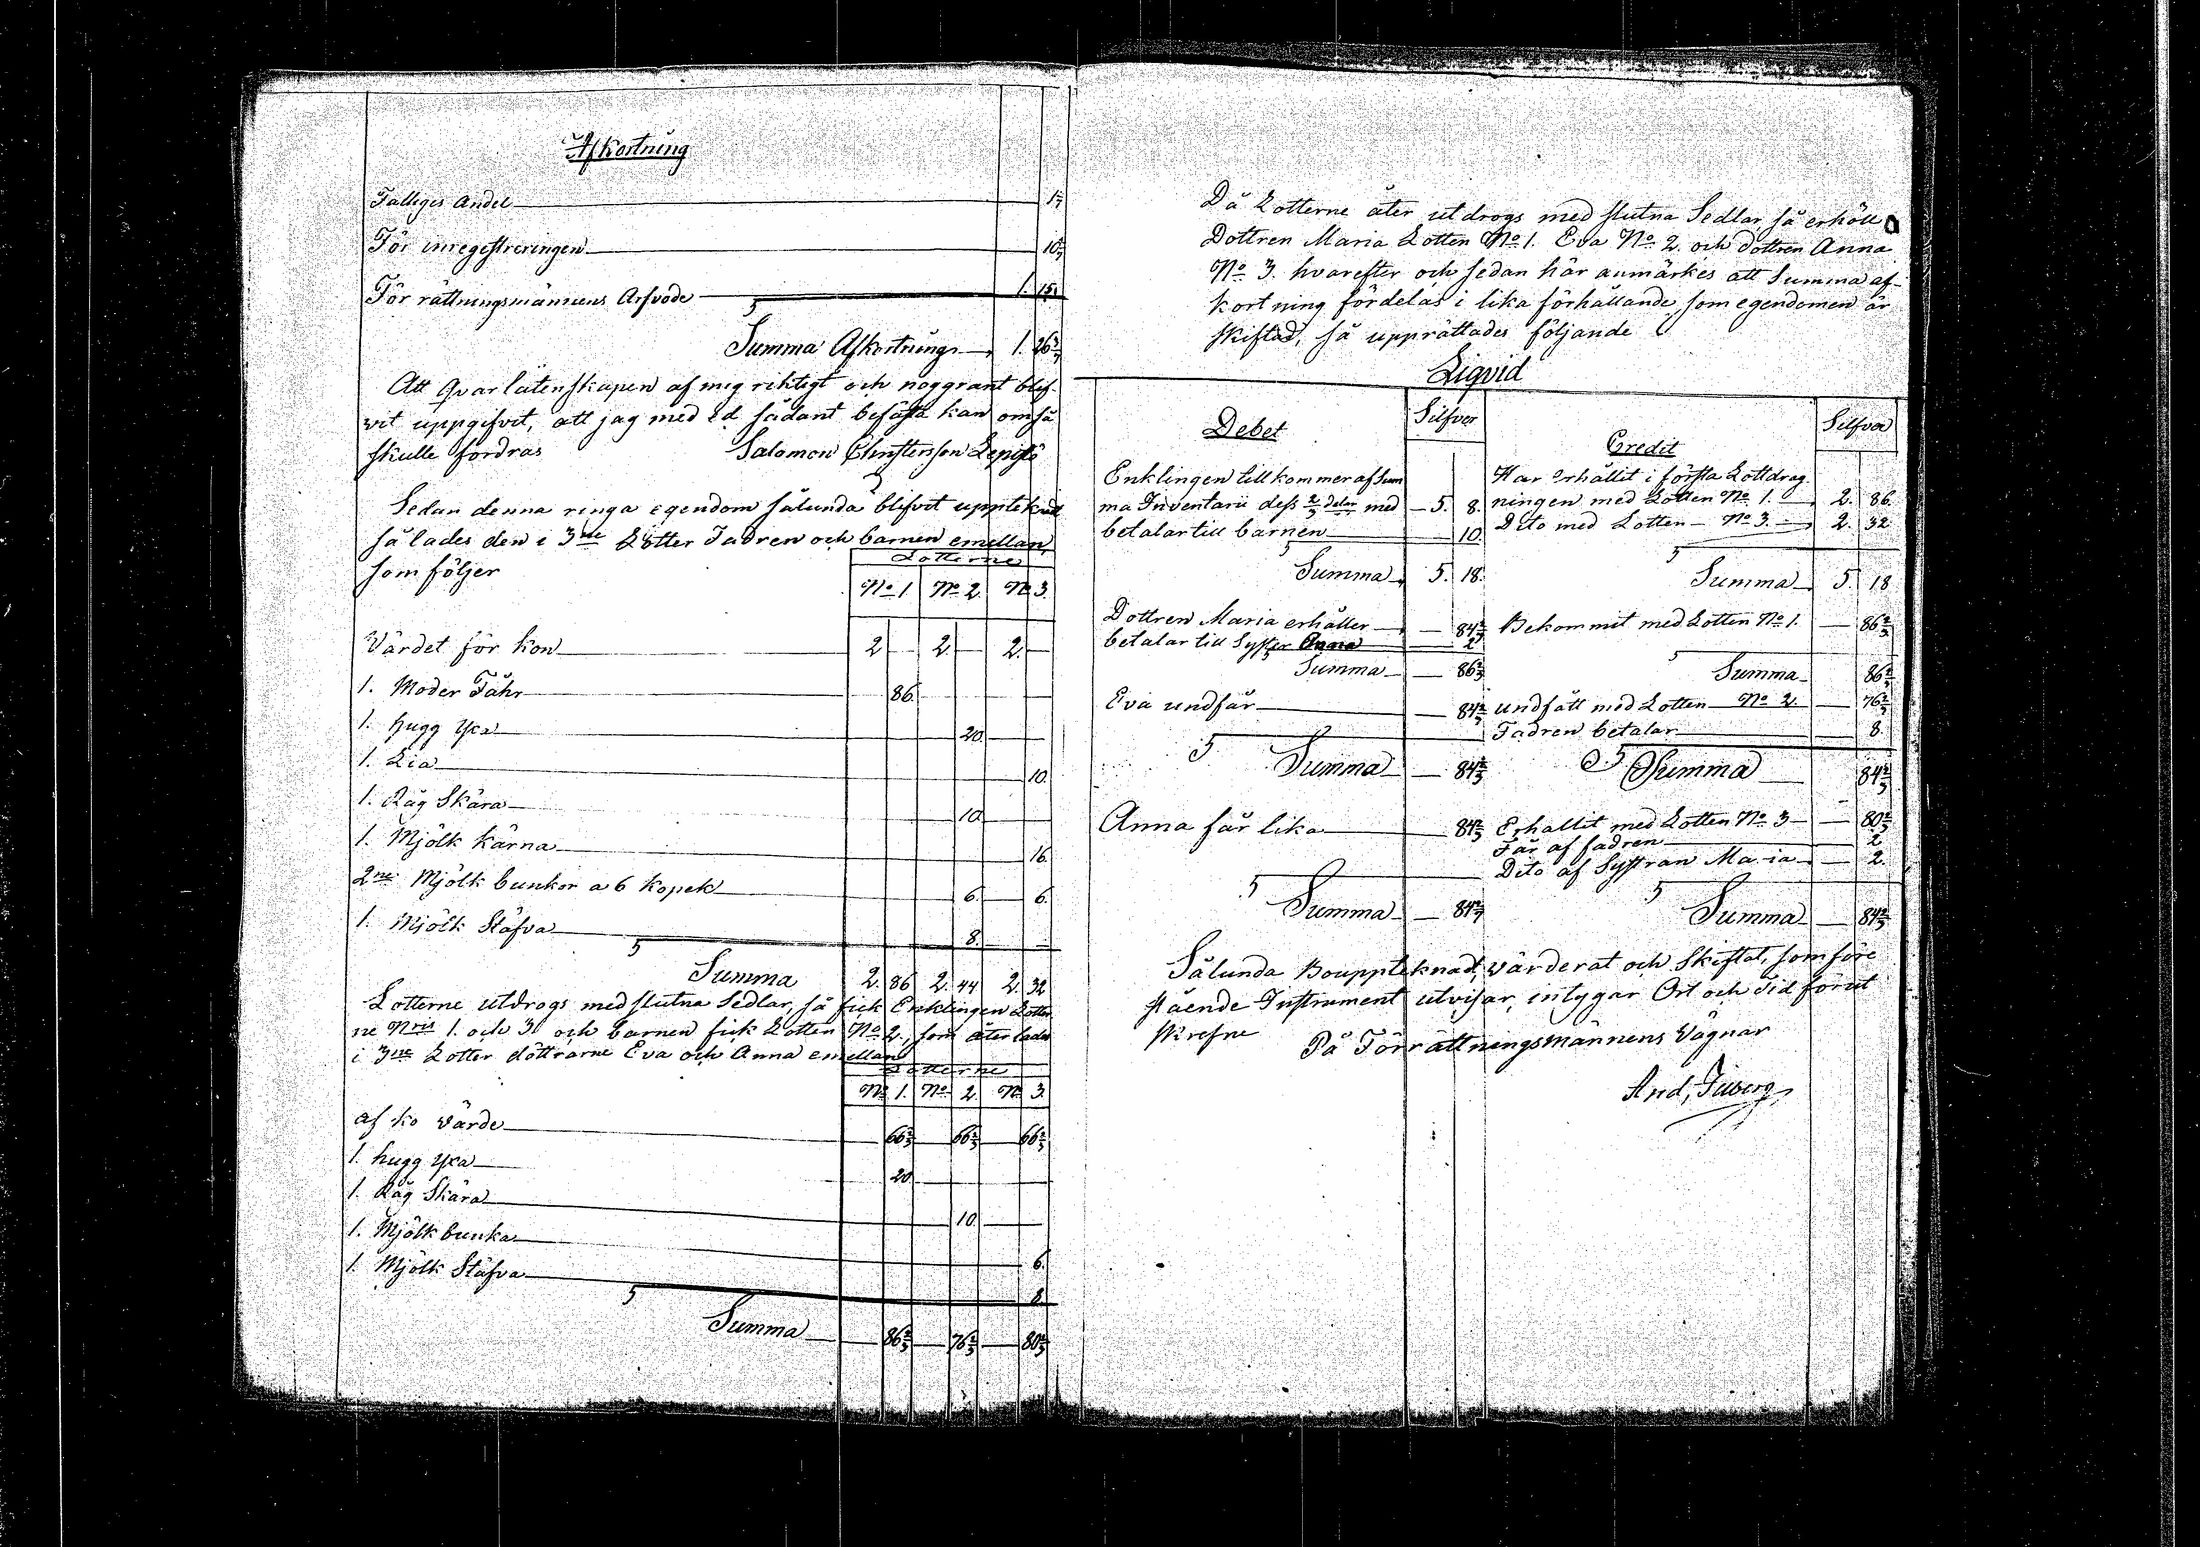 Afkortning
Fattiges Andel
För inregistreringen
För rättningsmännens Arfvode 1.
Summa Afkortning 1.
Att qvarlåtenskapen af mig riktigt och noggrant blif-
vit uppgifvit, att jag med ed sådant besästa kan om så
skulle fordras Salomon Christersson
Sedan denna ringa egendom sålunda blifvit uppteknad
så lades den i 3ne Lötter Fadren och barnen emellan,
som följer
Lotterne
No 1. No 2. No 3.
Värdet för kon 2 2. 2.
1. Moder Fåhr 86.
1. hugg yxa 20.
1. Lia 10.
1. Råg Skära 10.
1. Mjölk kärna 16.
2ne Mjölk bunkor a 6 kopek 6. 6.
1. Mjölk Stäfva 8.
Summa 2. 86 2. 44 2. 32
Lotterne utdrogs med slutna Sedlar, så fick Enklingen Lotter
ne Nris 1. och 3. och barnen fick Lotten No 2., som åter lades
i 3ne Lotter döttrarne Eva och Anna emellan
Lotterne
No 1. No 2. No 3.
af ko värde 66 2/3 66 2/3 66 2/3
1. hugg yxa 20.
1. Råg Skära 10.
1. Mjölk bunka 6.
1. Mjölk Stäfva 8.
Summa 86 2/3 76 2/3 80 2/3
Då Lotterne åter utdrogs med slutna Sedlar, så erhöll
Dottren Maria Lotten No 1. Eva No 2. och dottren Anna
No 3. hvarefter och sedan här anmärkes att Summa af-
kortning fördelas i lika förhållande, som egendomen är
skiftad, så upprättades följande
Liqvid
Debet Silfver
Enklingen tillkommer af Sum
ma Inventarii dess 2/3 delar med 5. 8.
betalar till barnen 10.
Summa 5. 18.
Dottren Maria erhåller 84 2/3
betalar till Syster Anna 2
Summa 86 2/3
Eva undfår 84 2/3
Summa 84 2/3
Anna får lika 84 2/3
Summa 84 2/3
Credit Silfver
Har erhållit i första Lottdrag-
ningen med Lotten No 1. 2. 86.
Dito med Lotten No 3. 2. 32
Summa 5. 18
Bekommit med Lotten No 1. 86 2/3
Summa 86 2/3
undfått med Lotten No 2. 76 2/3
Fadren betalar 8.
Summa 84 2/3
Erhållit med Lotten No 3 80 2/3
Får af fadren 2
Dito af Systran Maria 2.
Summa 84 2/3
Sålunda Bouppteknad, värderat och Skiftat, som före
stående Instrument utvisar, intygar Ort och Tid förut
skrefne
På Förrättningsmännens Vägnar
And,